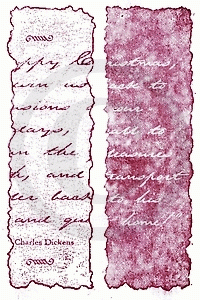 ppy Ch ristmas,
win us back to
usions of our
days, all to
in the treasure
h, and transport
ler back to his
and qui home!!
Charles Dickens